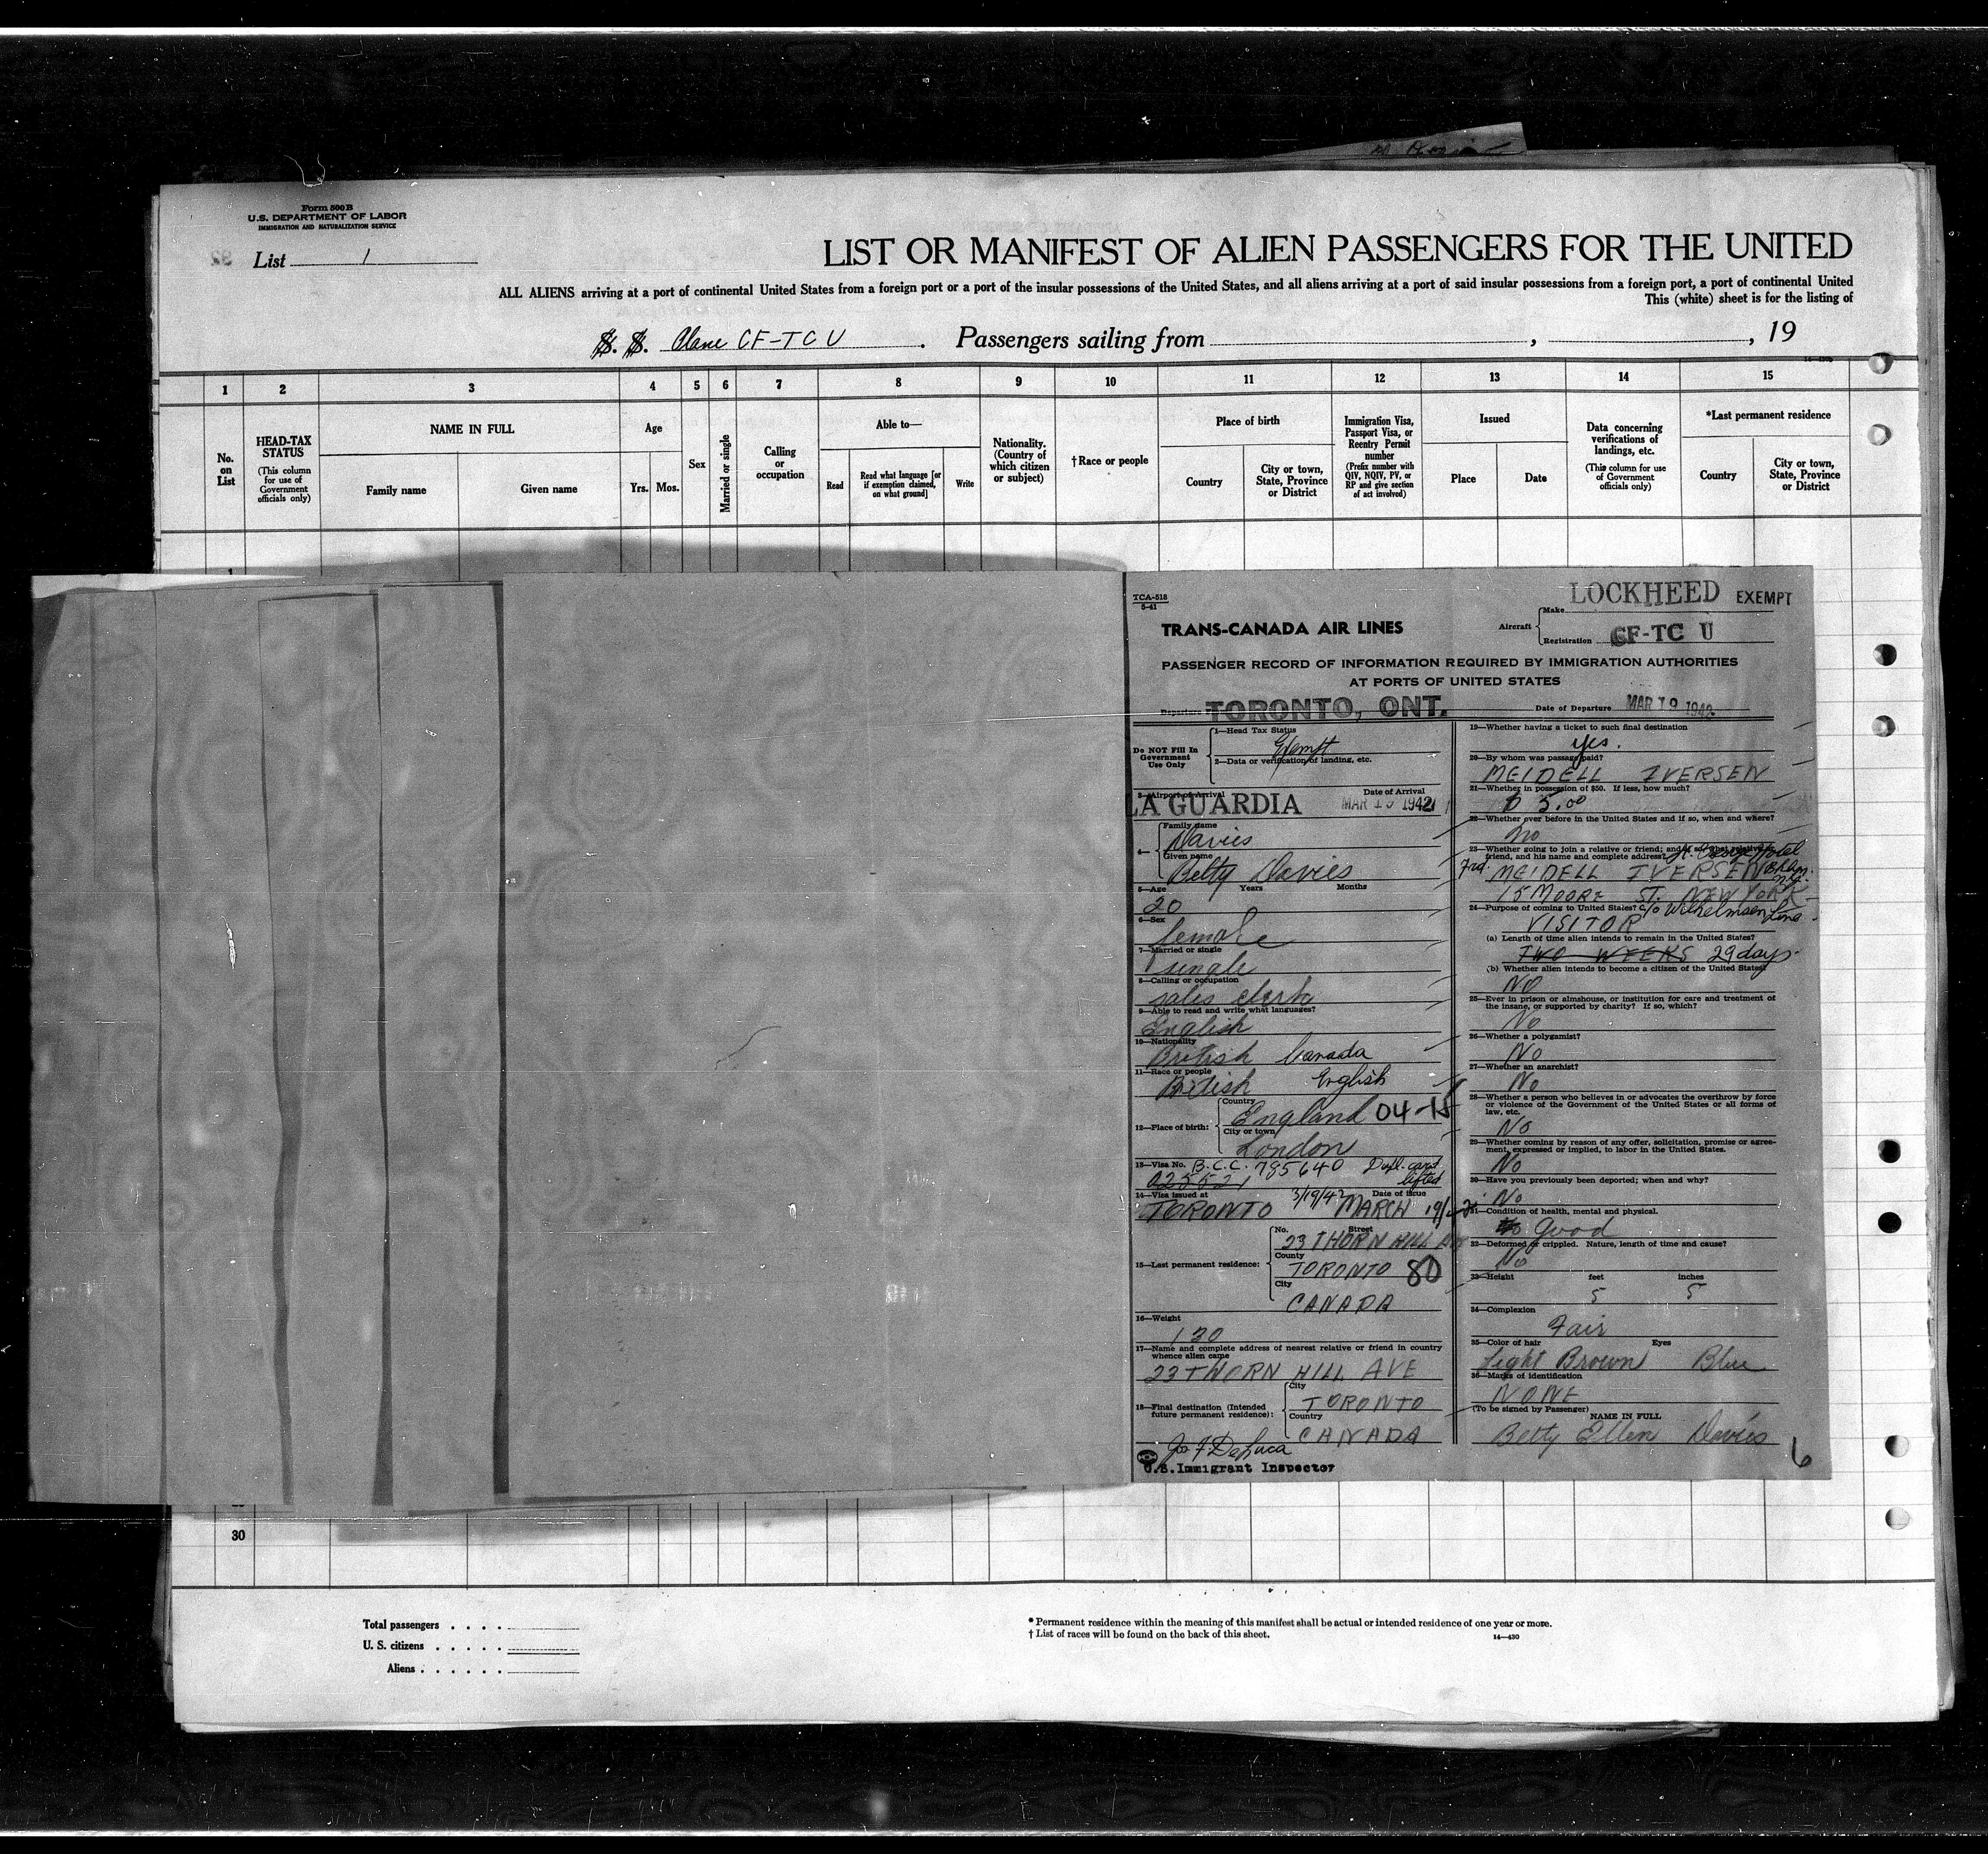 Form 500B
U.S. DEPARTMENT OF LABOR
IMMIGRATION AND NATURALIZATION SERVICE
List 1
LIST OR MANIFEST OF ALIEN PASSENGERS FOR THE UNITED
ALL ALIENS arriving at a port of continental United States from a foreign port or a port of the insular possessions of the United States, and all aliens arriving at a port of said insular possessions from a foreign port, a port of continental United
This (white) sheet is for the listing of
S. S. Plane CF-TCU. Passengers sailing from , , 19
14-430b
1 2 3 4 5 6 7 8 9 10 11 12 13 14 15
No. on List
HEAD-TAX STATUS
(This column for use of Government officials only)
NAME IN FULL
Family name
Given name
Age
Yrs. Mos.
Sex
Married or single
Calling or occupation
Able to—
Read
Read what language [or if exemption claimed, on what ground]
Write
Nationality. (Country of which citizen or subject)
†Race or people
Place of birth
Country
City or town, State, Province or District
Immigration Visa, Passport Visa, or Reentry Permit number
(Prefix number with QIV, NQIV, PV, or RP and give section of act involved)
Issued
Place
Date
Data concerning verifications of landings, etc.
(This column for use of Government officials only)
*Last permanent residence
Country
City or town, State, Province or District
TCA-518
5-41
TRANS-CANADA AIR LINES
Aircraft
Make LOCKHEED EXEMPT
Registration CF-TC U
PASSENGER RECORD OF INFORMATION REQUIRED BY IMMIGRATION AUTHORITIES
AT PORTS OF UNITED STATES
Departure TORONTO, ONT.
Date of Departure MAR 19 1942
Do NOT Fill In Government Use Only
1—Head Tax Status
Exempt
2—Data or verification of landing, etc.
3—Airport of Arrival Date of Arrival
LA GUARDIA MAR 19 1942
4—
Family name
Davies
Given name
Betty Davies
5—Age Years Months
20
6—Sex
female
7—Married or single
single
8—Calling or occupation
sales clerk
9—Able to read and write what languages?
English
10—Nationality
British Canada
11—Race or people
British English
12—Place of birth:
Country
England 04-15
City or town
London
13—Visa No. B.C.C. 785640 Dupl. card lifted
02552
14—Visa issued at Date of issue
TORONTO 3/19/42 MARCH 19/42
15—Last permanent residence:
No. Street
23 THORN HILL AVE
County
TORONTO 80
City
CANADA
16—Weight
130
17—Name and complete address of nearest relative or friend in country whence alien came
23 THORN HILL AVE
18—Final destination (Intended future permanent residence):
City
TORONTO
Country
CANADA
Jos F DeLuca
U.S. Immigrant Inspector
19—Whether having a ticket to such final destination
yes.
20—By whom was passage paid?
MEIDELL IVERSEN
21—Whether in possession of $50. If less, how much?
$ 5.00
22—Whether ever before in the United States and if so, when and where?
no
23—Whether going to join a relative or friend; and if so, what relative or friend, and his name and complete address?
St. George Hotel
Frd. MEIDELL IVERSEN Bklyn. N.Y.
15 MOORE ST. NEW YORK
24—Purpose of coming to United States? c/o Wilhelmsen Line
VISITOR
(a) Length of time alien intends to remain in the United States?
TWO WEEKS 29 days.
(b) Whether alien intends to become a citizen of the United States?
NO
25—Ever in prison or almshouse, or institution for care and treatment of the insane, or supported by charity? If so, which?
No
26—Whether a polygamist?
No
27—Whether an anarchist?
No
28—Whether a person who believes in or advocates the overthrow by force or violence of the Government of the United States or all forms of law, etc.
No
29—Whether coming by reason of any offer, solicitation, promise or agreement, expressed or implied, to labor in the United States.
No
30—Have you previously been deported; when and why?
No
31—Condition of health, mental and physical.
good
32—Deformed or crippled. Nature, length of time and cause?
No
33—Height feet inches
5 5
34—Complexion
Fair
35—Color of hair Eyes
Light Brown Blue
36—Marks of identification
NONE
(To be signed by Passenger)
NAME IN FULL
Betty Ellen Davies
6
30
Total passengers
U. S. citizens
Aliens
* Permanent residence within the meaning of this manifest shall be actual or intended residence of one year or more.
† List of races will be found on the back of this sheet.
14—430